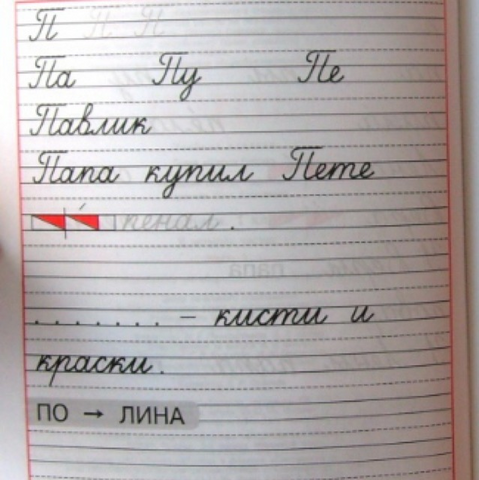 П П П
Па Пу Пе
Павлик
Папа купил Пете
пенал.
. . . . . . . – кисти и
краски.
ПО → ЛИНА